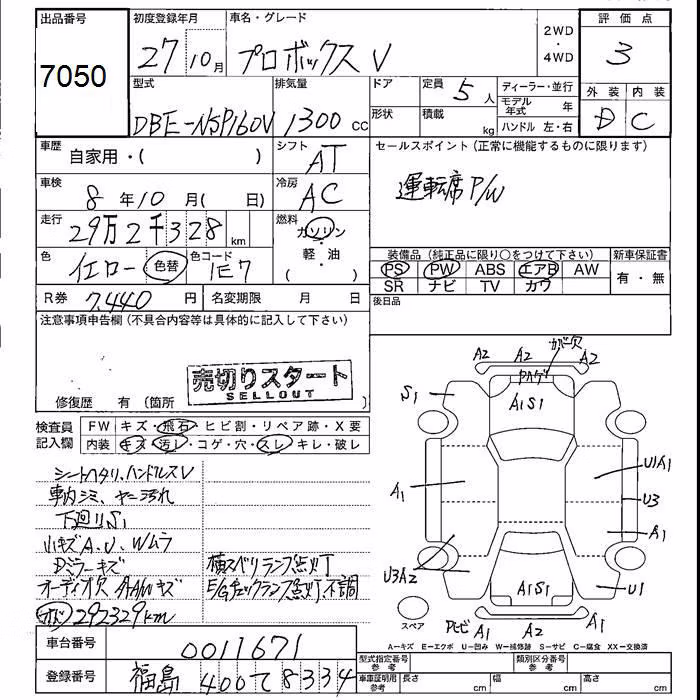 出品番号
7050
初度登録年月
27 10月
車名・グレード
プロボックス V
2WD
・
4WD
評価点
3
外装 内装
D C
型式
DBE-NSP160V
排気量
1300 cc
ドア
形状
定員
5人
積載
kg
ディーラー・並行
モデル年式 年
ハンドル 左・右
車歴
自家用・( )
シフト
AT
セールスポイント(正常に機能するものに限ります)
運転席P/W
車検
8年10月( 日)
冷房
AC
走行
29万2千328km
燃料
ガソリン
・
軽・油
( )
色
イエロー 色替
色コード
1E7
装備品(純正品に限り○をつけて下さい)
PS PW ABS エアB AW
SR ナビ TV カワ
新車保証書
有・無
R券
7,440円
名変期限 月 日
後日品
注意事項申告欄(不具合内容等は具体的に記入して下さい)
売切りスタート
SELLOUT
修復歴 有(箇所
検査員
記入欄
FW キズ・飛石・ヒビ割・リペア跡・X要
内装 キズ・汚レ・コゲ・穴・スレ・キレ・破レ
シートヘタリ、ハンドルスレ
車内シミ、ヤニ汚れ
下廻りS1
小キズA.U、Wムラ
Dミラーキズ
横スベリランプ点灯
オーディオ欠
E/Gチェックランプ点灯 不調
292329km
A2 A2 カバー欠 A2
A1S1
S1
A1
U1A1
U3
A1
U3A2
U1
A1S1
スペア
A1 A2 A1
A-キズ E-エクボ U-凹み W-補修跡 S-サビ C-腐食 XX-交換済
車台番号
0011671
登録番号
福島 400 て 8334
型式指定番号
参考
類別区分番号
参考
車庫証明用
参考
長さ cm 幅 cm 高さ cm